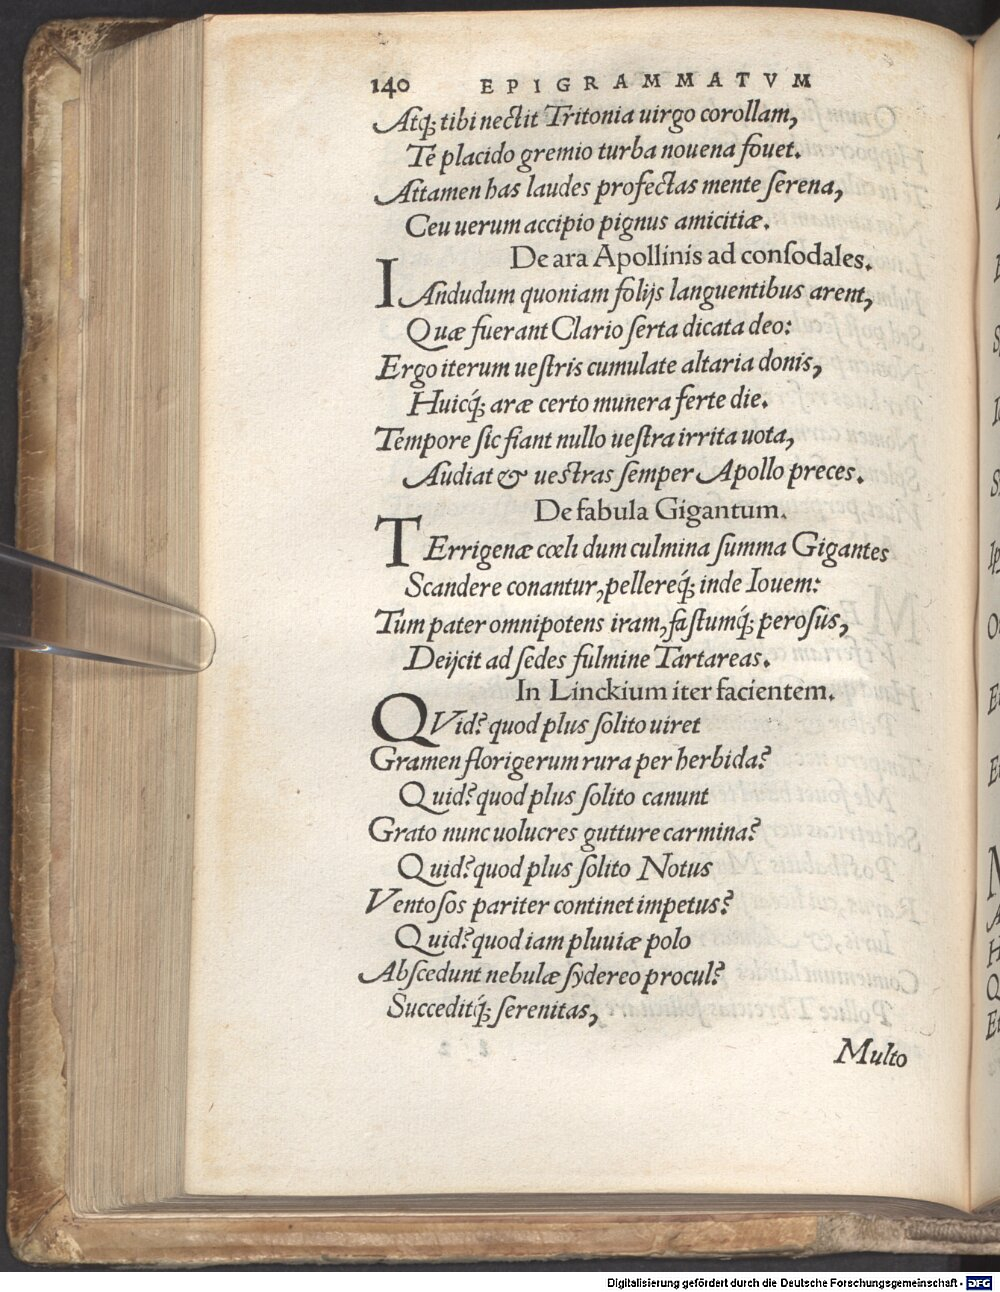 140 EPIGRAMMATVM
Atq; tibi nectit Tritonia uirgo corollam,
Te placido gremio turba nouena fouet.
Attamen has laudes profectas mente serena,
Ceu uerum accipio pignus amicitiæ.
De ara Apollinis ad consodales.
IAndudum quoniam folijs languentibus arent,
Quæ fuerant Clario serta dicata deo:
Ergo iterum uestris cumulate altaria donis,
Huicq; aræ certo munera ferte die.
Tempore sic fiant nullo uestra irrita uota,
Audiat & uestras semper Apollo preces.
De fabula Gigantum.
TErrigenæ cœli dum culmina summa Gigantes
Scandere conantur, pellereq; inde Iouem:
Tum pater omnipotens iram, fastumq; perosus,
Deijcit ad sedes fulmine Tartareas.
In Linckium iter facientem.
QVid? quod plus solito uiret
Gramen florigerum rura per herbida?
Quid? quod plus solito canunt
Grato nunc uolucres gutture carmina?
Quid? quod plus solito Notus
Ventosos pariter continet impetus?
Quid? quod iam pluuiæ polo
Abscedunt nebulæ sydereo procul?
Succeditq; serenitas,
Multo
Digitalisierung gefördert durch die Deutsche Forschungsgemeinschaft - DFG